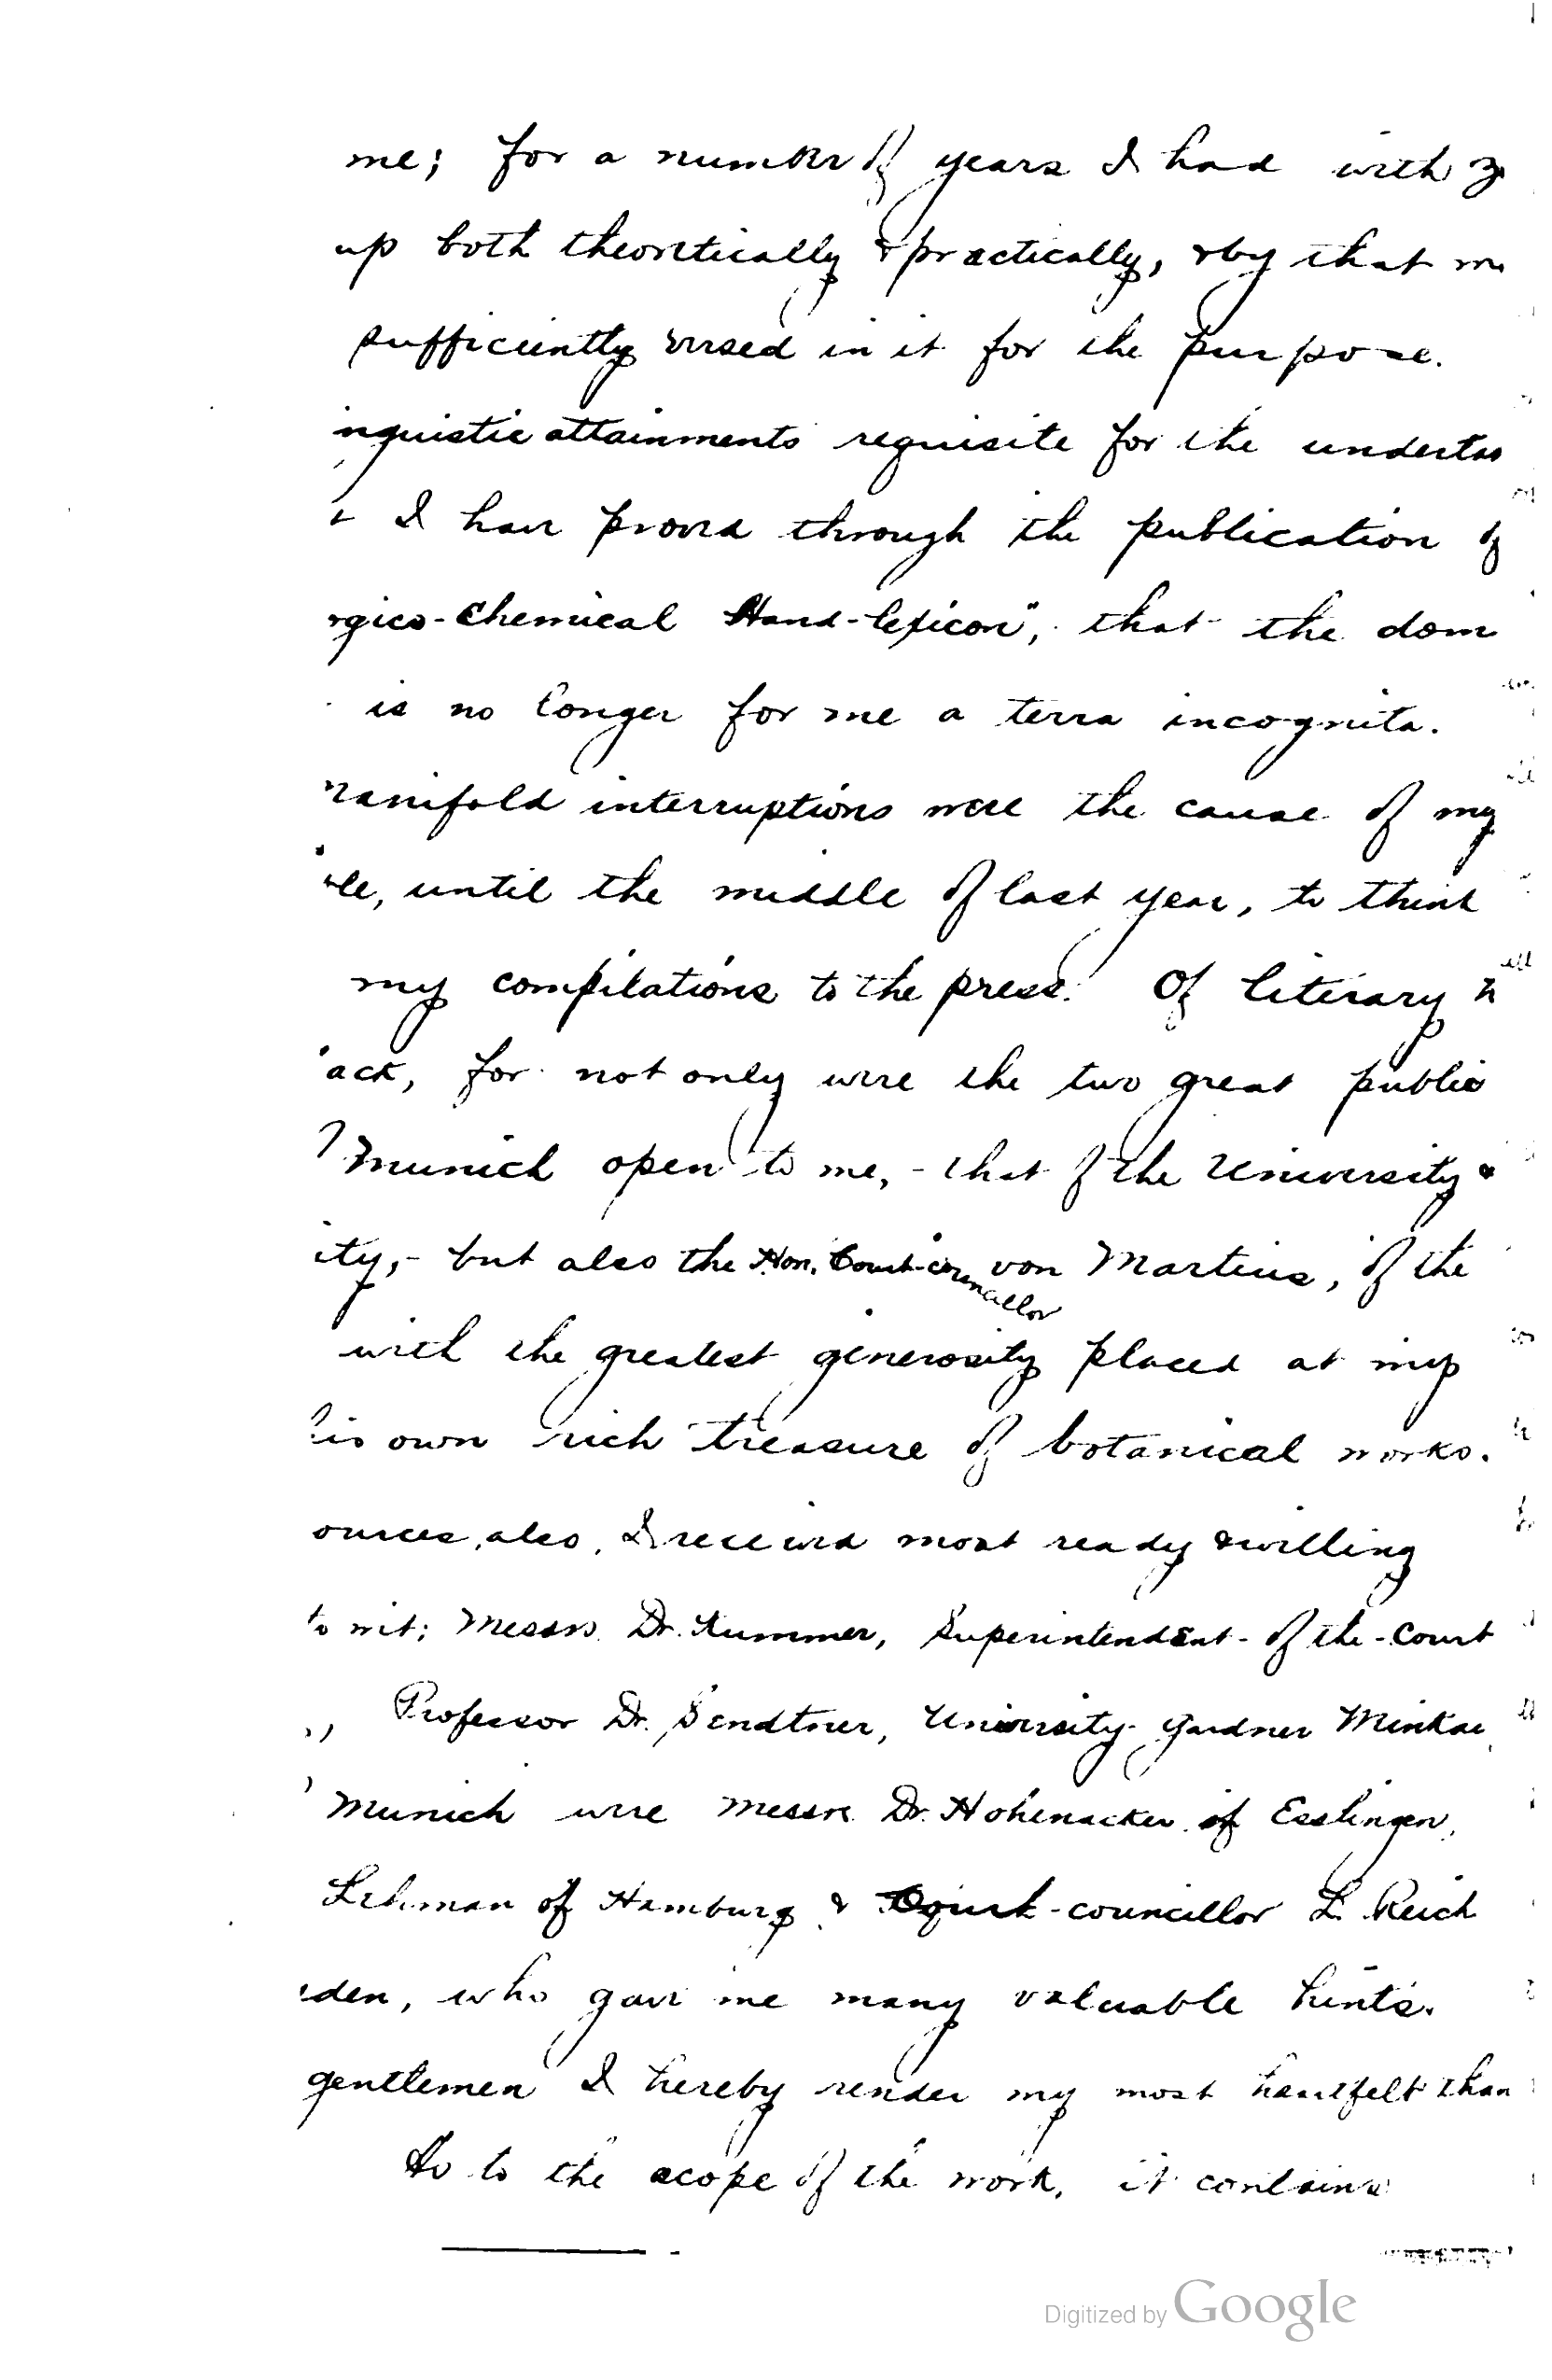 me; for a number of years I had with
up both theoretically & practically, & by that
sufficiently versed in it for the purpose.
nguistic attainments requisite for the undertas
I have proved through the publication of
rgico-chemical Hand-lexicon", that the dom
is no longer for me a terra incognita.
manifold interruptions were the cause of my
ble, until the middle of last year, to think
my compilations to the press. Of literary
ack, for not only were the two great public
Munich open to me, - that of the University &
ity, - but also the Hon. Court-councillor von Martius, of the
with the greatest generosity placed at my
his own rich treasure of botanical works.
ources, also, I received most ready & willing
to wit; Messrs. Dr. Kummer, Superintendent-of the-Court
Professor Dr. Sendtner, University-gardner
Munich were Messrs. Dr. Hohenacker of Esslingen,
Lehman of Hamburg & Court-councillor L. Reich
den, who gave me many valuable hints.
gentlemen I hereby render my most heartfelt than
As to the scope of the work, it contains
Digitized by Google